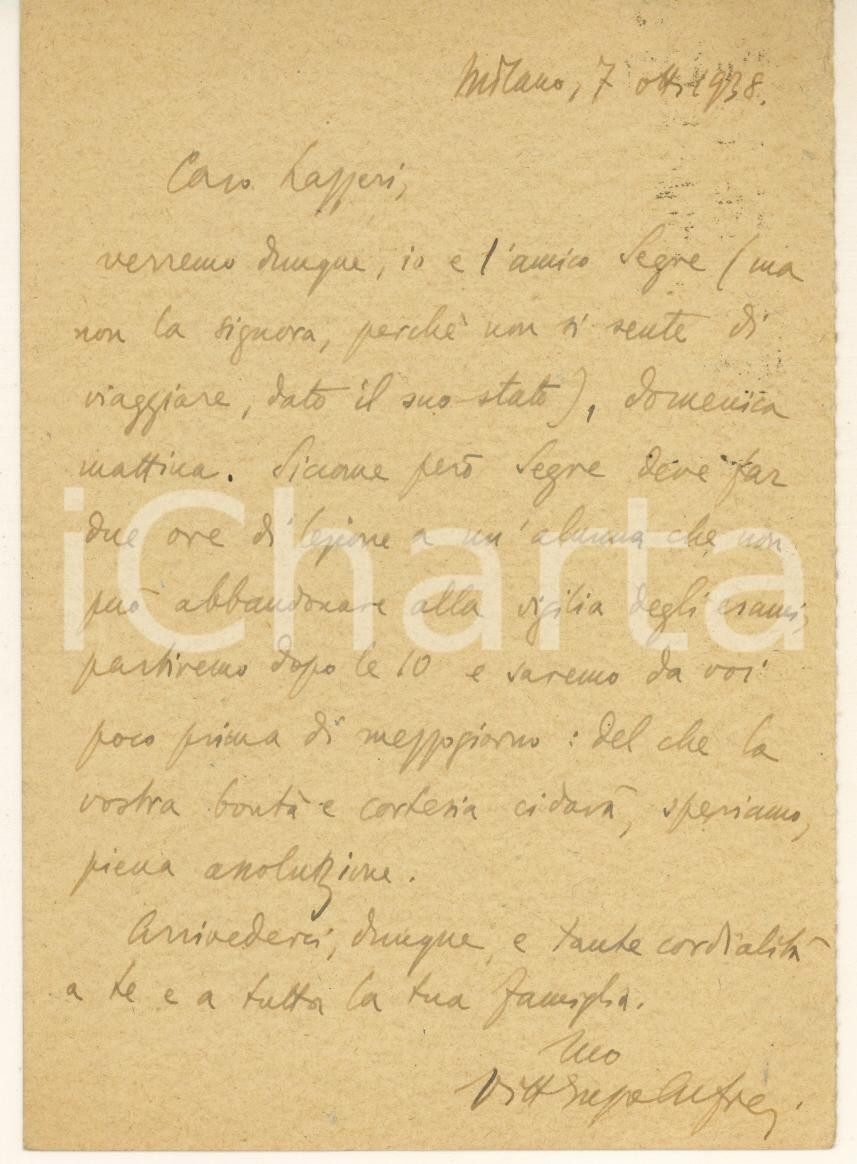 Milano, 7 ott. 1938.
Caro Lazzeri,
verremo dunque, io e l'amico Segre (ma
non la signora, perchè non si sente di
viaggiare, dato il suo stato), domenica
mattina. Siccome però Segre deve far
due ore di lezione a un'alunna che non
può abbandonare alla vigilia degli esami,
partiremo dopo le 10 e saremo da voi
poco prima di mezzogiorno: del che la
vostra bontà e cortesia ci darà, speriamo,
piena assoluzione.
Arrivederci, dunque, e tante cordialità
a te e a tutta la tua famiglia.
tuo
iCharta